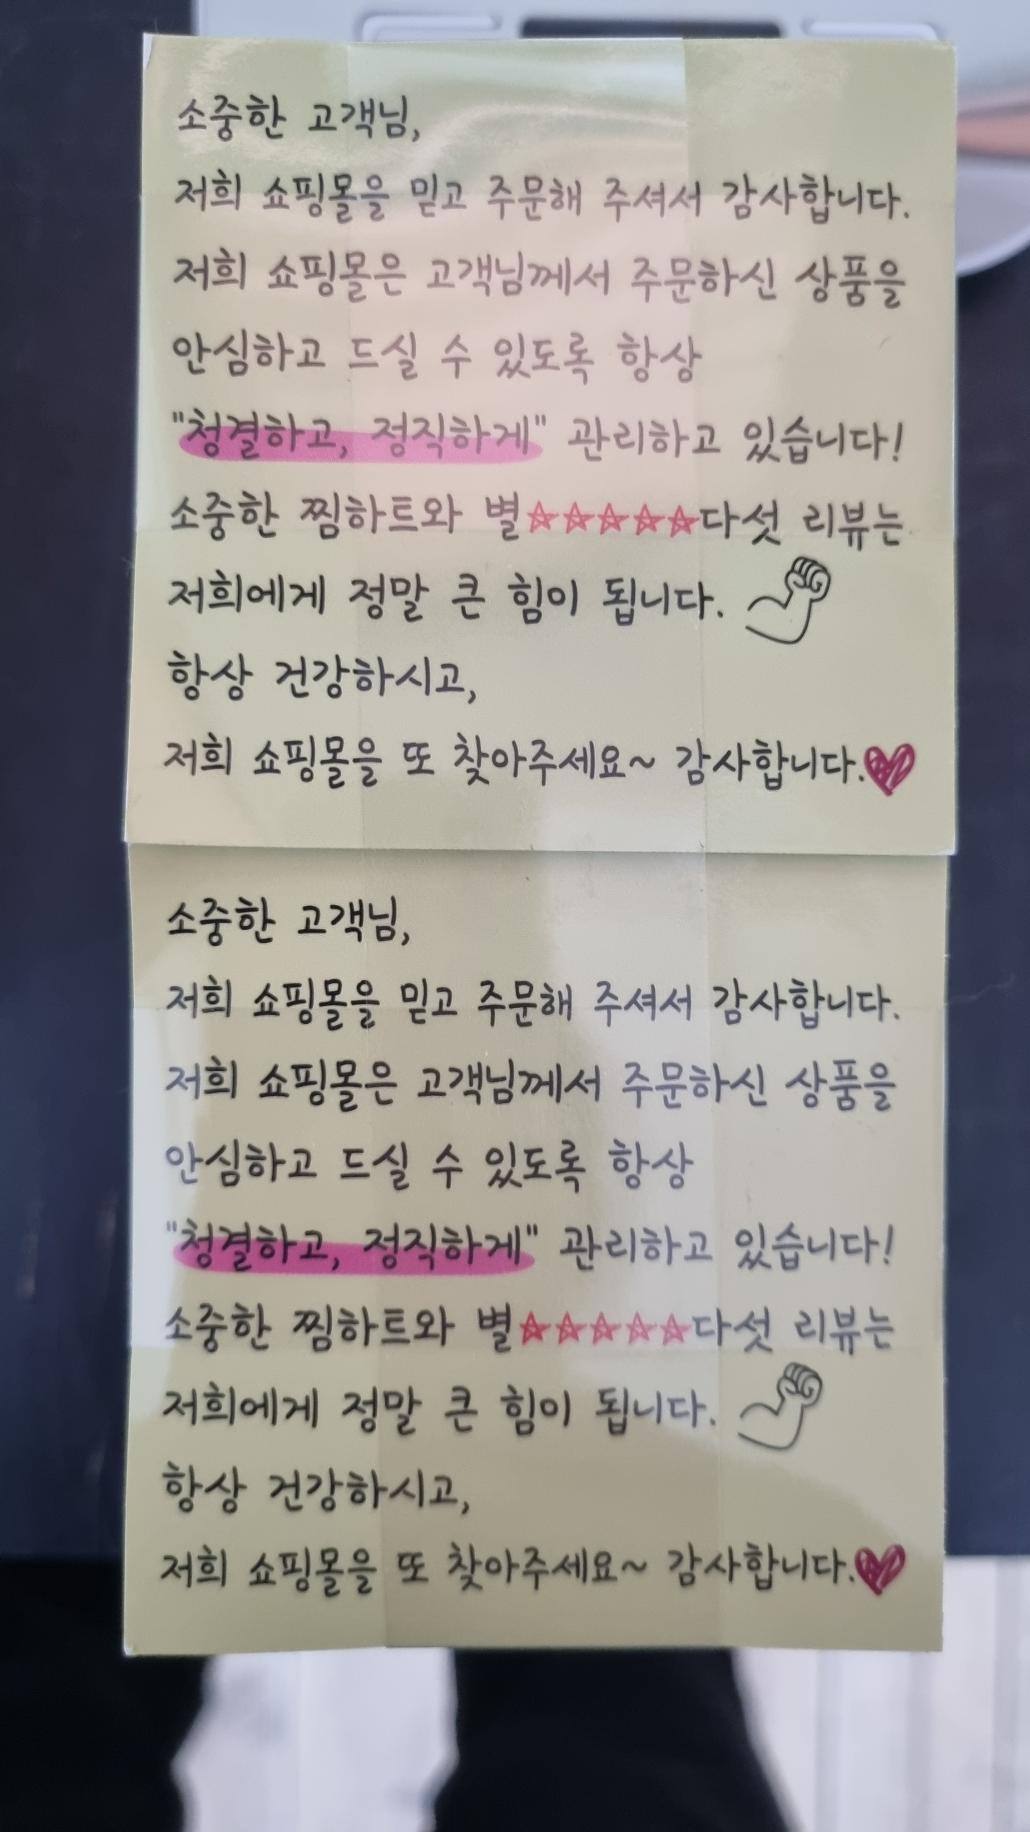 소중한 고객님,
저희 쇼핑몰을 믿고 주문해 주셔서 감사합니다.
저희 쇼핑몰은 고객님께서 주문하신 상품을
안심하고 드실 수 있도록 항상
"청결하고, 정직하게" 관리하고 있습니다!
소중한 찜하트와 별☆☆☆☆☆다섯 리뷰는
저희에게 정말 큰 힘이 됩니다.
항상 건강하시고,
저희 쇼핑몰을 또 찾아주세요~ 감사합니다.♥
소중한 고객님,
저희 쇼핑몰을 믿고 주문해 주셔서 감사합니다.
저희 쇼핑몰은 고객님께서 주문하신 상품을
안심하고 드실 수 있도록 항상
"청결하고, 정직하게" 관리하고 있습니다!
소중한 찜하트와 별☆☆☆☆☆다섯 리뷰는
저희에게 정말 큰 힘이 됩니다.
항상 건강하시고,
저희 쇼핑몰을 또 찾아주세요~ 감사합니다.♥